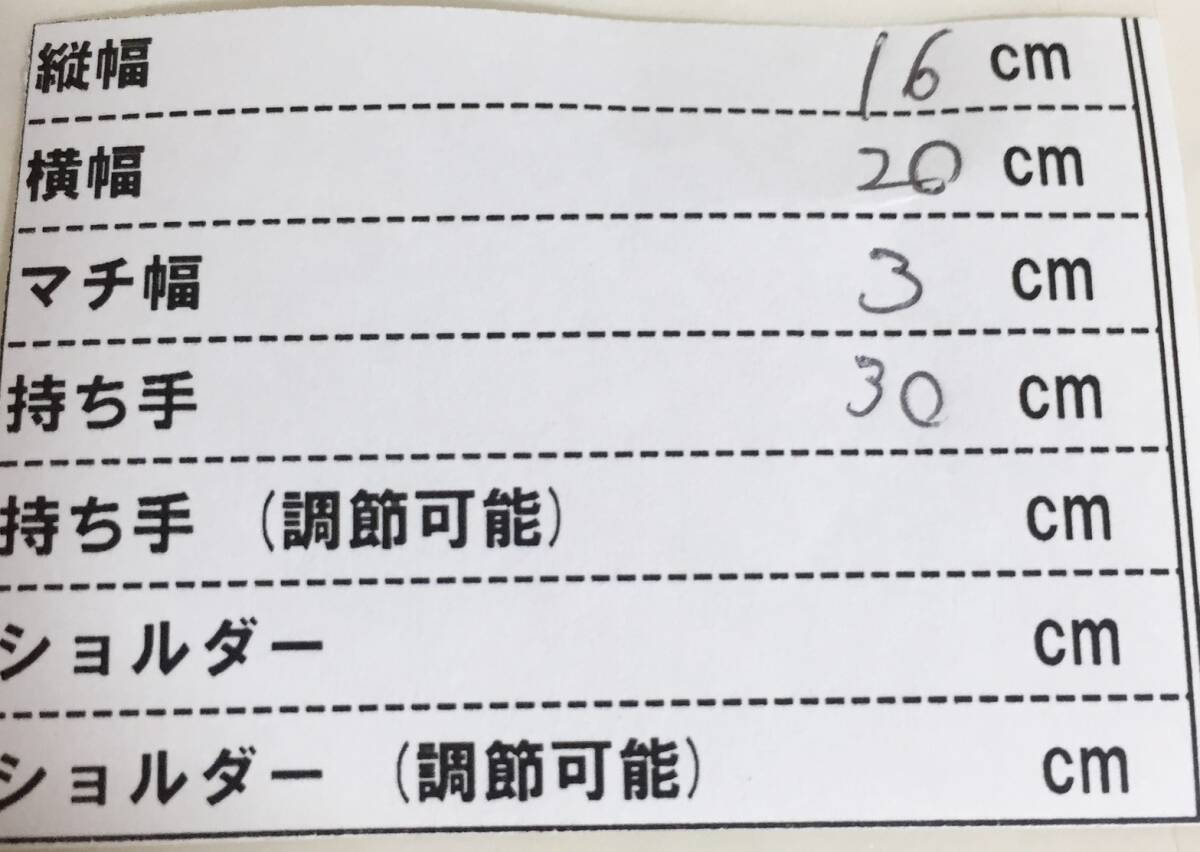 縦幅 16 cm
横幅 20 cm
マチ幅 3 cm
持ち手 30 cm
持ち手 (調節可能) cm
ショルダー cm
ショルダー (調節可能) cm